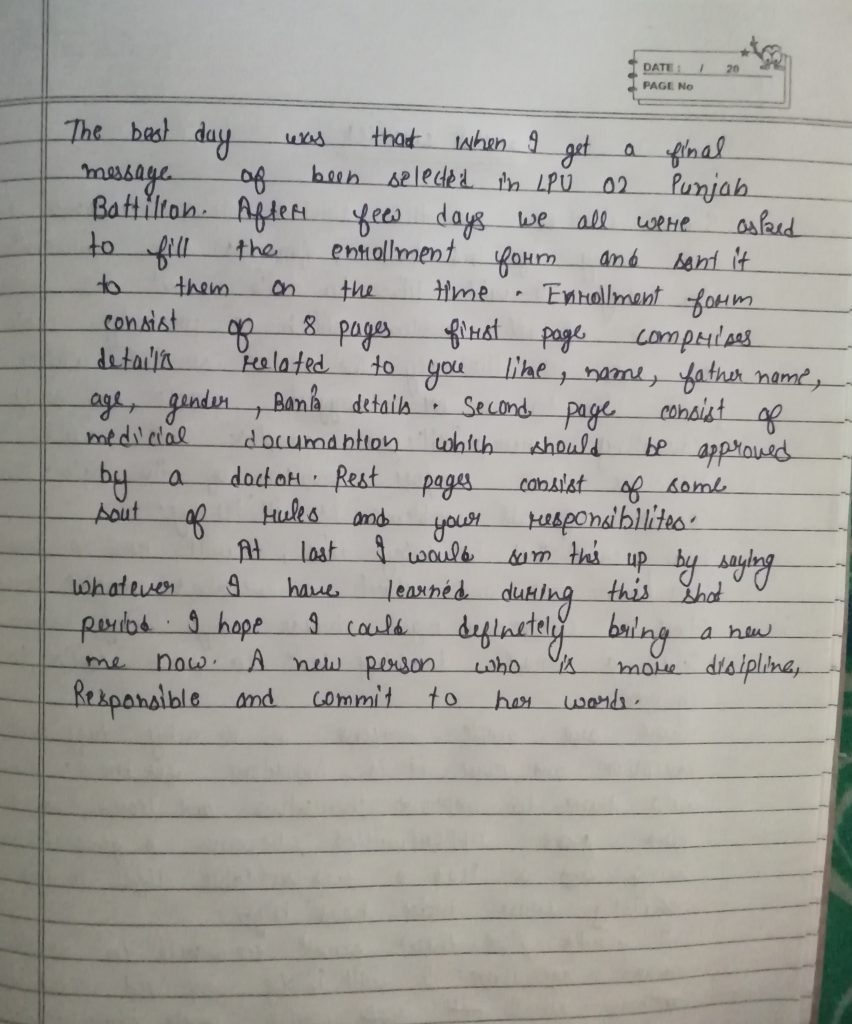 DATE: / 20
PAGE No
The best day was that when I get a final
message of been selected in LPU 02 Punjab
Battilion. After few days we all were asked
to fill the enrollment form and sent it
to them on the time. Enrollment form
consist of 8 pages first page comprises
details related to you like, name, father name,
age, gender, Bank details. Second page consist of
medicial documantion which should be approved
by a doctor. Rest pages consist of some
sout of rules and your responsibilites.
At last I would sum this up by saying
whatever I have learned during this shot
period. I hope I could definetely bring a new
me now. A new person who is more disipline,
Responsible and commit to her words.